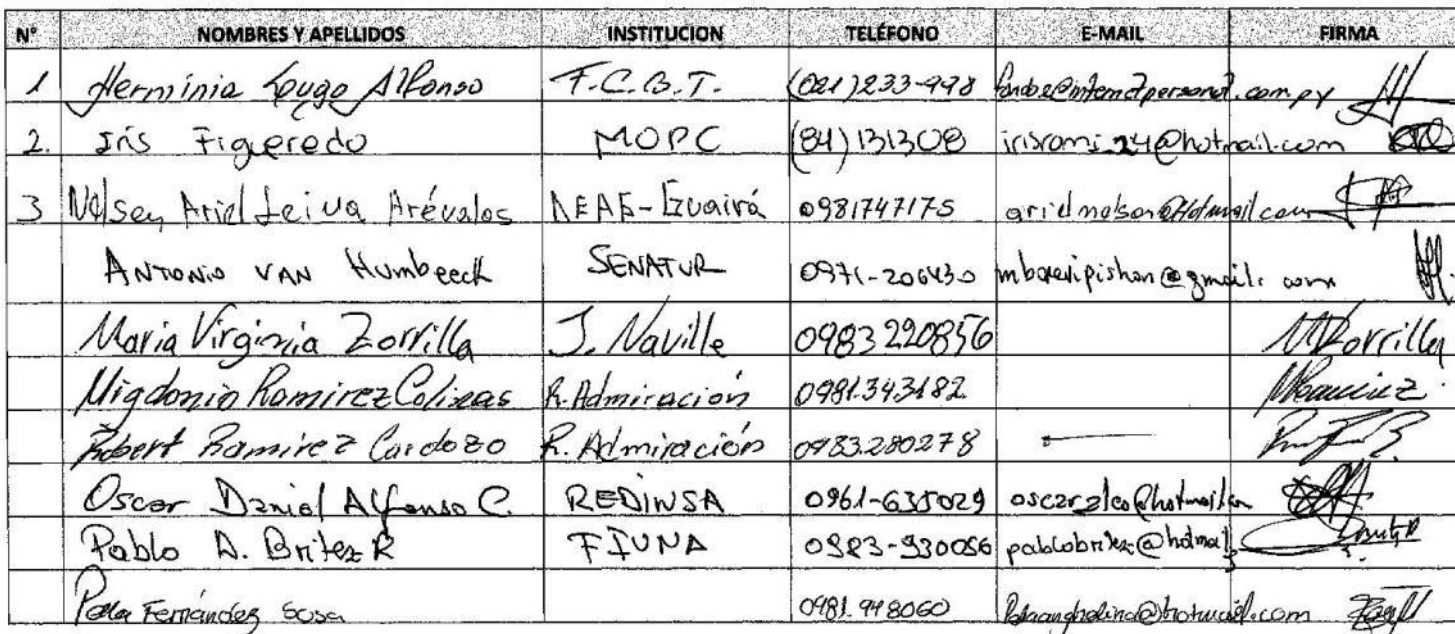 N° NOMBRES Y APELLIDOS INSTITUCION TELÉFONO E-MAIL FIRMA
1 Herminia Lugo Alfonso F.C.B.T. (021)233-998
2. Iris Figueredo MOPC (84)131308 irisromi_24@hotmail.com
3 Nelsen Ariel Leiva Arévalos Guairá 0981747175 arielnelson@Hotmail.com
Antonio van Humbeeck SENATUR 0971-206430
Maria Virginia Zorrilla J. Naville 0983220856 MVZorrilla
Migdonio Ramirez Colinas R. Admiración 0981.343.182. MRamirez
Robert Ramirez Cardozo R. Admiración 0983.280278
Oscar Daniel Alfonso C. REDINSA 0961-635029
Pablo D. Britez R FIUNA 0983-930056
Fernández Sosa 0981.948060